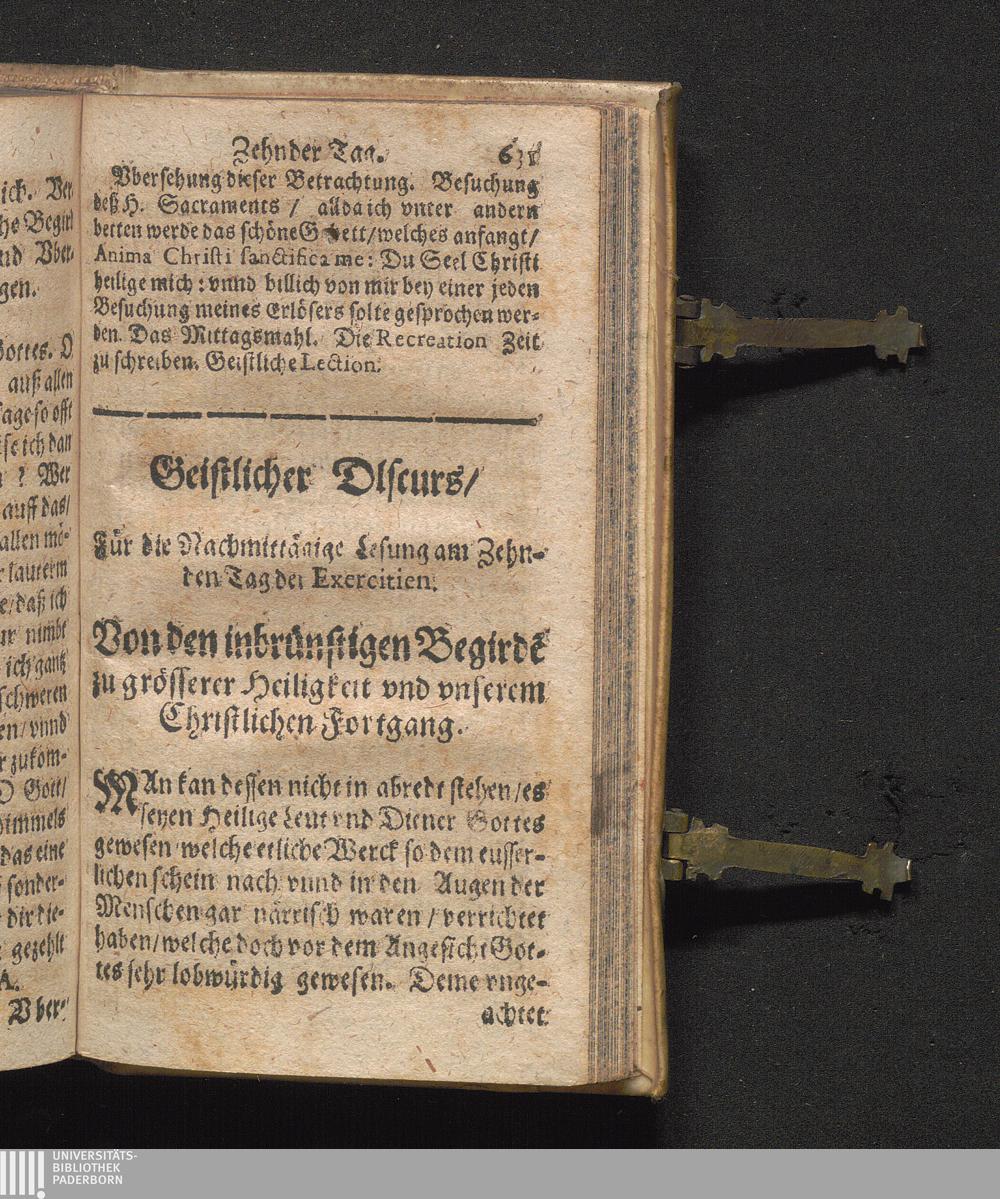 ick. Ver
he Begird
nd Vber-
gen.
Gottes. O
auß allen
sage so offt
se ich dan
? Wer
auff das/
allen mö-
lauterm
e/daß ich
ur nimbt
ich gantz
schweren
en/vnnd
r zukom-
O Gott/
Himmels
das eine
sonder-
dir die-
gezehlt
A.
Vber-
Zehnder Tag. 631
Vbersehung dieser Betrachtung. Besuchung
deß H. Sacraments / allda ich vnter andern
betten werde das schöne Gebett/welches anfangt/
Anima Christi sanctifica me: Du Seel Christi
heilige mich: vnnd billich von mir bey einer jeden
Besuchung meines Erlösers solte gesprochen wer-
den. Das Mittagsmahl. Die Recreation Zeit
zu schreiben. Geistliche Lection.
Geistlicher DIscurs/
Für die Nachmittägige Lesung am Zehn-
den Tag der Exercitien.
Von den inbrünstigen Begirdē
zu grösserer Heiligkeit vnd vnserem
Christlichen Fortgang.
MAn kan dessen nicht in abredt stehen/es
seyen Heilige Leut vnd Diener Gottes
gewesen welche etliche Werck so dem eusser-
lichen schein nach vnnd in den Augen der
Menschen gar närrisch waren/verrichtet
haben/welche doch vor dem Angesicht Got-
tes sehr lobwürdig gewesen. Deme vnge-
achtet
UNIVERSITÄTS-
BIBLIOTHEK
PADERBORN